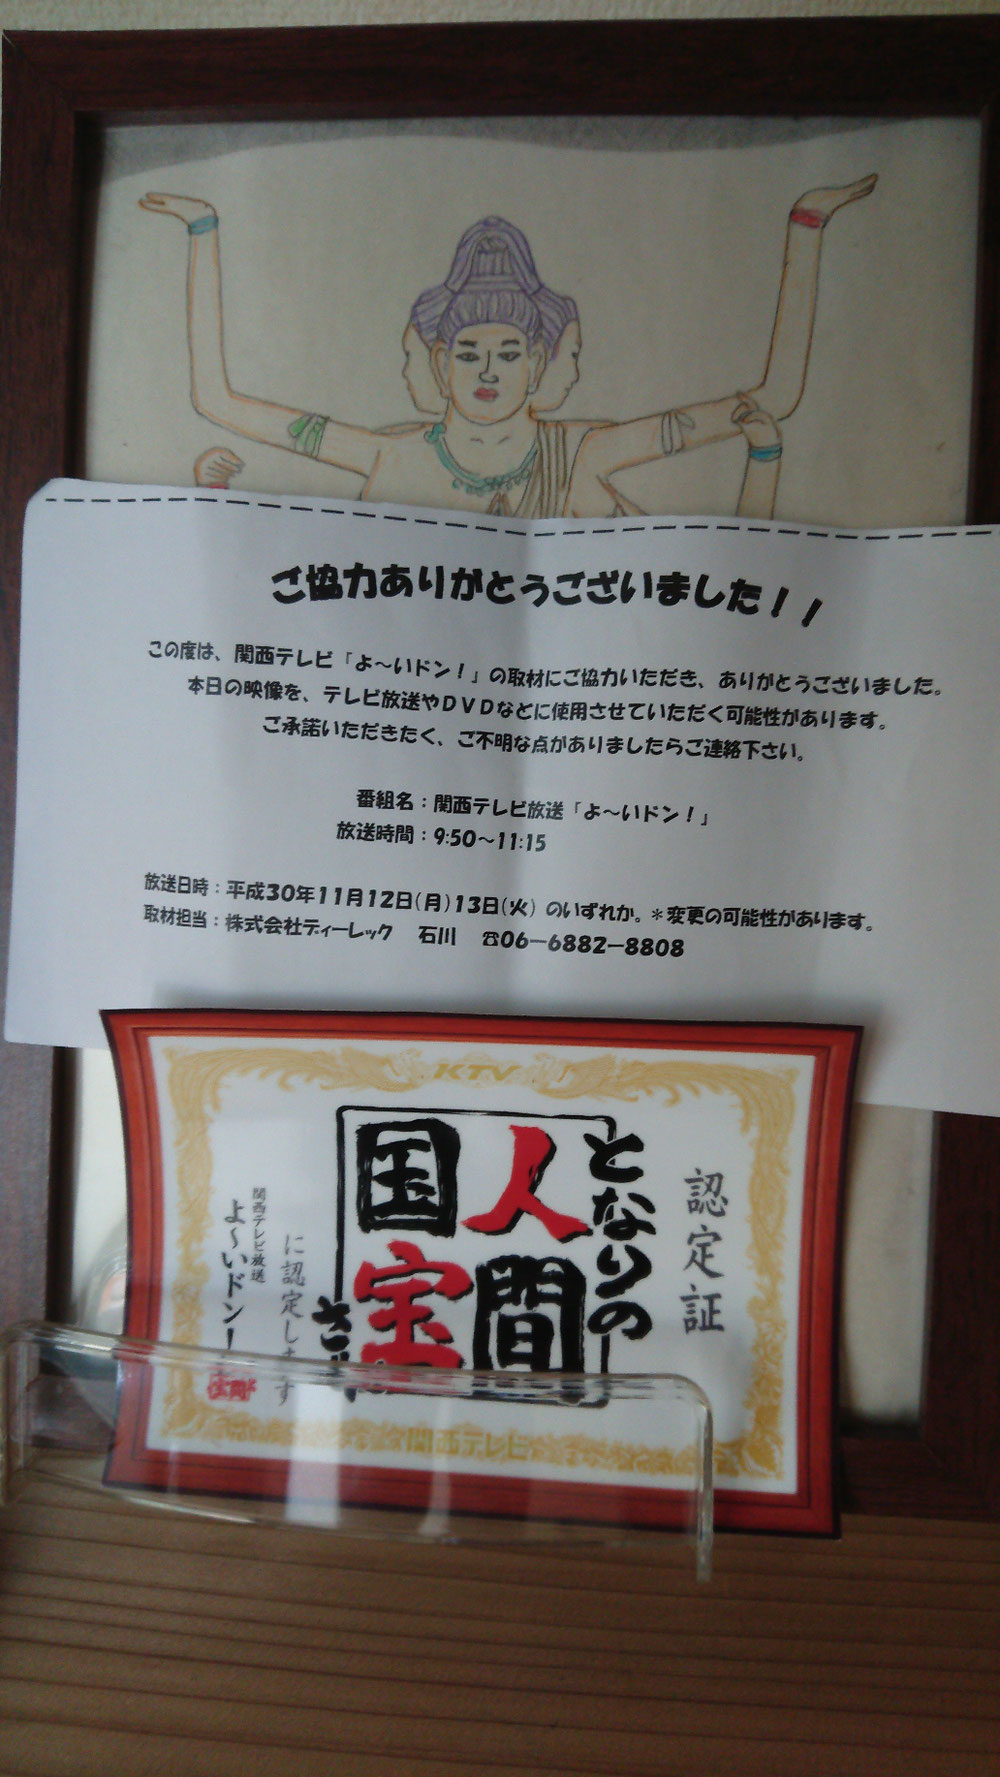 ご協力ありがとうございました！！
この度は、関西テレビ「よ～いドン！」の取材にご協力いただき、ありがとうございました。
本日の映像を、テレビ放送やＤＶＤなどに使用させていただく可能性があります。
ご承諾いただきたく、ご不明な点がありましたらご連絡下さい。
番組名：関西テレビ放送「よ～いドン！」
放送時間：9:50～11:15
放送日時：平成30年11月12日(月)13日(火) のいずれか。＊変更の可能性があります。
取材担当：株式会社ディーレック 石川 ☎06－6882－8808
KTV
認定証
となりの
人間
国宝
さん
に認定します
関西テレビ放送
よ～いドン！
関西テレビ